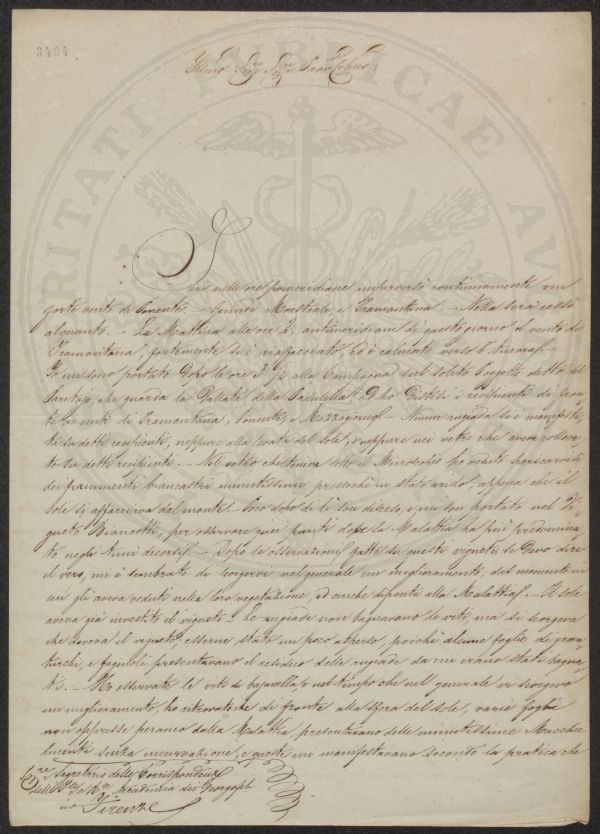 3404
Illmo Sigre Sigre Pron Colmo
Ieri nelle ore pomeridiane imperversò continuamente un
forte vento di Ponente. - Quindi Maestrale, e Tramontana. - Nella sera cessò
alquanto. - La Mattina alle ore 2, antimeridiane di questo giorno il vento di
Tramontana, fortemente si è riaffacciato, ed è calmato verso l'Aurora. -
Io mi sono portato dopo le ore 3 1/2 alla Campagna sul solito Poggetto detto del
che guarda la Vallata della Ed ho disteso i recipienti di fron-
te ai venti di Tramontana, Ponente, e Mezzogiorno. - Niuna rugiada si è manifesta-
ta su detti recipienti, neppure alla levata del sole, e neppure nei vetri che avevo colloca-
to su detti recipienti. - Nel vetro che teneva sotto il Microscopio ho veduto
dei frammenti biancastri minutissimi pressochè in stato arido, appena che il
sole si affacciava dal monte. Poco dopo di lì son disceso, e mi son portato nel Vi-
gneto Biancotti, per osservare quei punti dove la Malattia ha più predomina-
to negli Anni decorsi. - Dopo le osservazioni fatte su questi vigneti, se devo dire
il vero, mi è sembrato di scorgervi nel generale un miglioramento, dal momento in
cui gli aveva veduti nella loro vegetazione, ed anche disposti alla Malattia. - Il sole
aveva già investito il vigneto - Le rugiade non bagnavano le viti, ma si scorgeva
che doveva il vigneto, esserne stato un poco asperso, poichè alcune foglie di gran-
turchi, e fagiuoli presentavano il residuo delle rugiade da cui erano stati bagna-
ti. - Ho osservate le viti di e nel tempo che nel generale vi scorgevo
un miglioramento, ho ritrovato che di fronte alla sfera del sole, varie foglie
non oppresse peranco dalla Malattia, presentavano delle minutissime Macchie
lucenti senza incurvazione, e queste mi manifestavano secondo la pratica che
Sigre Segretario delle Corrispondenze
della Rle Accademia dei Georgofili
in Firenze
VERITATI PUBLICAE